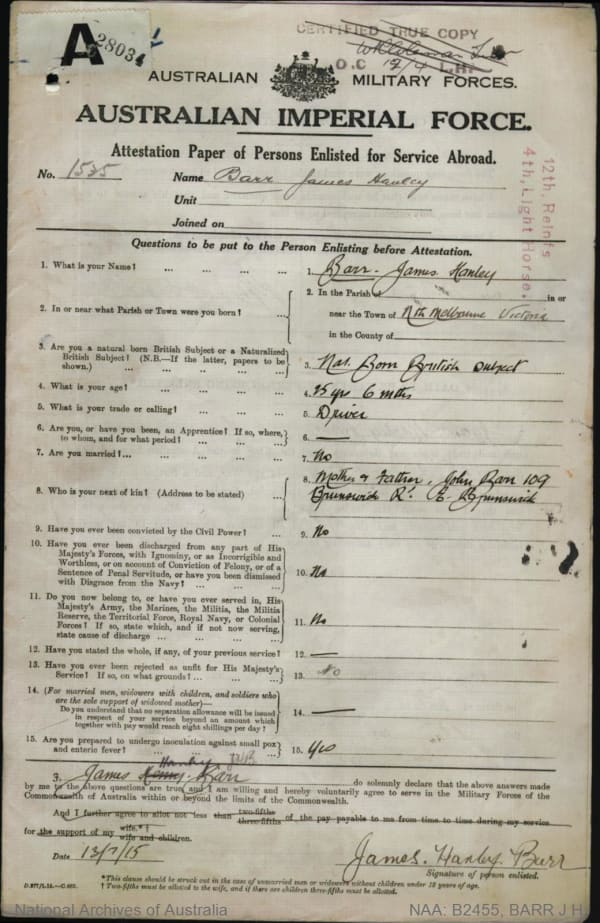 A 28034
CERTIFIED TRUE COPY
O.C 17/4 L.H.
AUSTRALIAN MILITARY FORCES.
AUSTRALIAN IMPERIAL FORCE.
Attestation Paper of Persons Enlisted for Service Abroad.
No. 1535 Name Barr James Hanley
Unit
Joined on
12th Reinfs
4th Light Horse.
Questions to be put to the Person Enlisting before Attestation.
1. What is your Name? ... ... ... 1. Barr. James Hanley
2. In or near what Parish or Town were you born? ... 2. In the Parish of in or
near the Town of Nth Melbourne Victoria
in the County of
3. Are you a natural born British Subject or a Naturalized
British Subject? (N.B.—If the latter, papers to be
shown.) 3. Nat. Born British Subject
4. What is your age? ... ... ... 4. 25 yrs 6 mths
5. What is your trade or calling? ... ... 5. Driver
6. Are you, or have you been, an Apprentice? If so, where,
to whom, and for what period? ... ... ... 6. —
7. Are you married? ... ... ... 7. No
8. Who is your next of kin? (Address to be stated) ... 8. Mother & Father, John Barr 109
Brunswick Rd. E. Brunswick
9. Have you ever been convicted by the Civil Power? ... 9. No
10. Have you ever been discharged from any part of His
Majesty's Forces, with Ignominy, or as Incorrigible and
Worthless, or on account of Conviction of Felony, or of a
Sentence of Penal Servitude, or have you been dismissed
with Disgrace from the Navy? ... ... ... 10. No
11. Do you now belong to, or have you ever served in, His
Majesty's Army, the Marines, the Militia, the Militia
Reserve, the Territorial Force, Royal Navy, or Colonial
Forces? If so, state which, and if not now serving,
state cause of discharge ... ... ... 11. No
12. Have you stated the whole, if any, of your previous service? 12. —
13. Have you ever been rejected as unfit for His Majesty's
Service? If so, on what grounds? ... ... ... 13. No
14. (For married men, widowers with children, and soldiers who
are the sole support of widowed mother)—
Do you understand that no separation allowance will be issued
in respect of your service beyond an amount which
together with pay would reach eight shillings per day? 14. —
15. Are you prepared to undergo inoculation against small pox
and enteric fever? ... ... ... 15. Yes
Hanley JHB
I, James Henry Barr do solemnly declare that the above answers made
by me to the above questions are true, and I am willing and hereby voluntarily agree to serve in the Military Forces of the
Commonwealth of Australia within or beyond the limits of the Commonwealth.
And I further agree to allot not less than two-fifths three-fifths of the pay payable to me from time to time during my service
for the support of my wife.*† wife and children.
Date 13/7/15
James. Hanley. Barr
Signature of person enlisted.
*This clause should be struck out in the case of unmarried men or widowers without children under 18 years of age.
† Two-fifths must be allotted to the wife, and if there are children three-fifths must be allotted.
National Archives of Australia
NAA: B2455, BARR J H